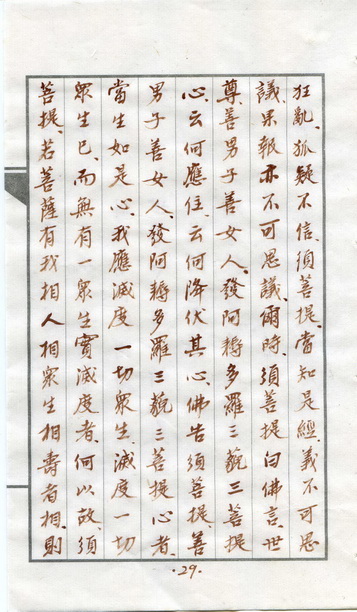 狂亂、狐疑不信、須菩提、當知是經、義不可思
議、果報亦不可思議、爾時、須菩提白佛言、世
尊、善男子善女人、發阿耨多羅三藐三菩提
心、云何應住、云何降伏其心、佛告須菩提、善
男子善女人、發阿耨多羅三藐三菩提心者、
當生如是心、我應滅度一切眾生、滅度一切
眾生已、而無有一眾生實滅度者、何以故、須
菩提、若菩薩有我相人相眾生相壽者相、則
·29·